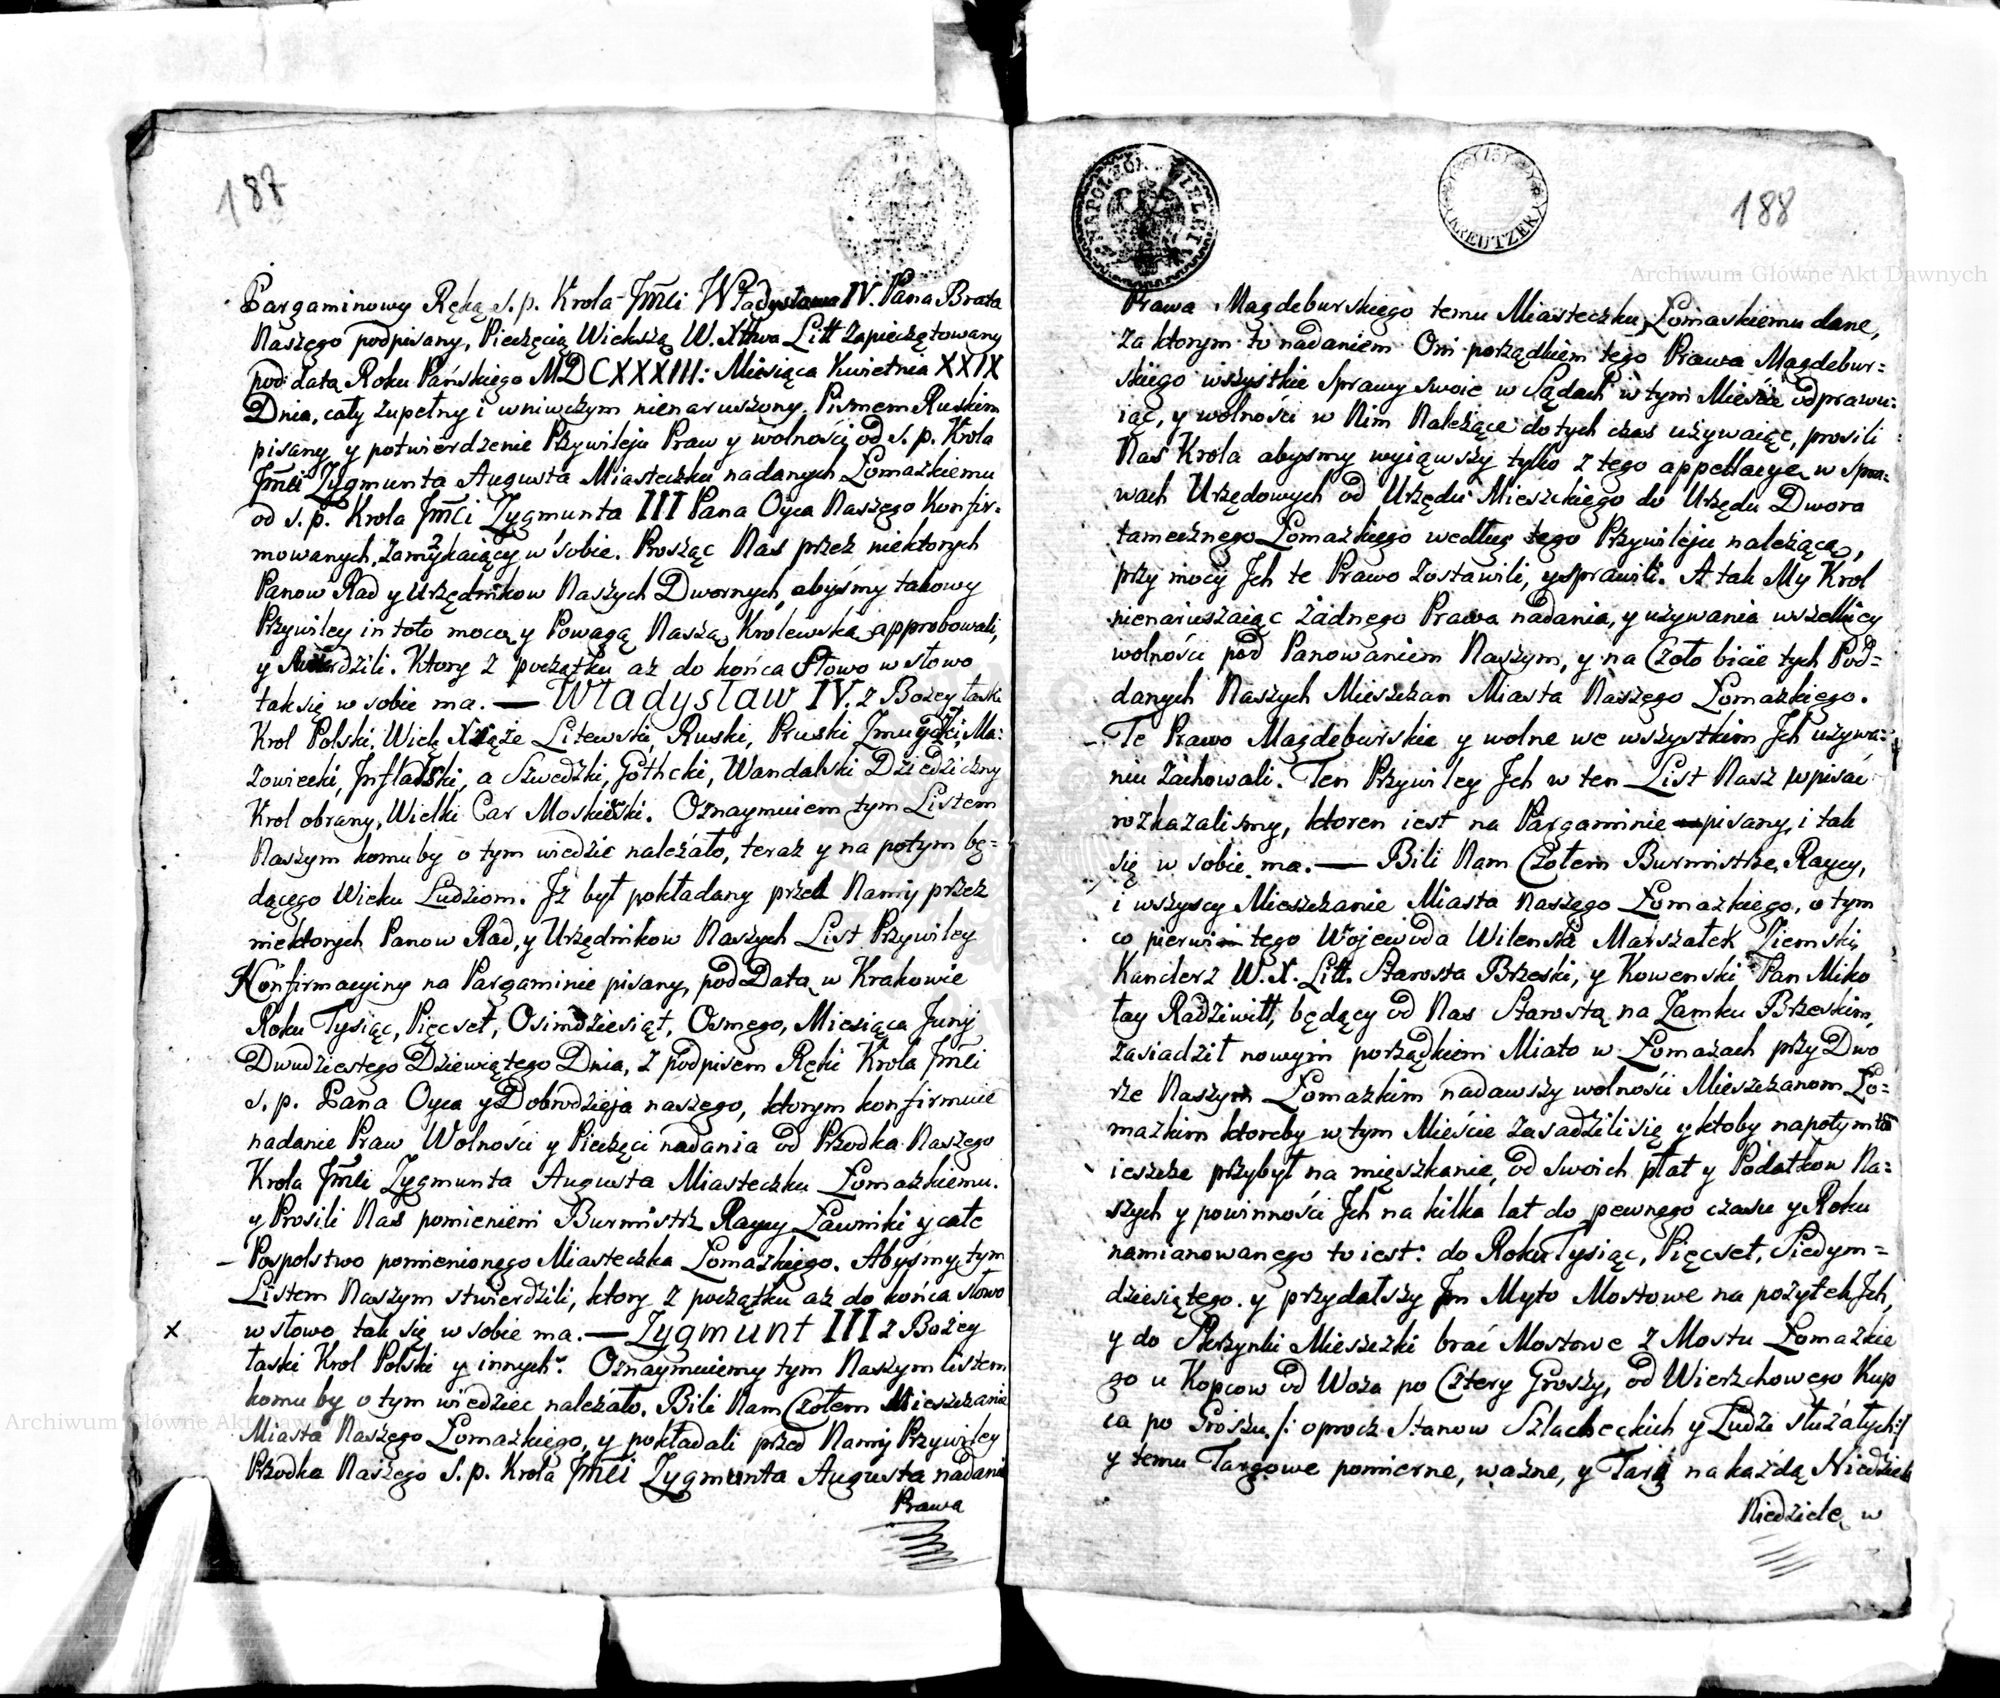 187
Pargaminowy Ręką s. p. Krola Jm̃ci Władysława IV. Pana Brata
Naszego podpisany, Pieczęcią Wiekszą W. Xttwa Litt zapieczętowany
pod datą Roku Pańskiego MDCXXXIII: Miesiąca Kwietnia XXIX
Dnia, cały zupełny i wniwczym nienaruszony, Pismem Ruskim
pisany y potwierdzenie Przywileju Praw y wolności od s. p. Krola
Jm̃ci Zygmunta Augusta Miasteczku nadanych Łomazkiemu
od s. p. Krola Jm̃ci Zygmunta III Pana Oyca Naszego Konfir-
mowanych, zamykaiący w sobie. Prosząc Nas przez niektorych
Panow Rad y Urzędnikow Naszych Dwornych, abyśmy takowy
Przywiley in toto mocą y Powagą Naszą Krolewską approbowali,
y dzili. Ktory z początku aż do końca Słowo w słowo
tak się w sobie ma. — Władysław IV. z Bożey łaski
Krol Polski, Wielk. Xiąże Litewski, Ruski, Pruski Zmuydzki, Ma:
zowiecki, Jnflantski, a Szwedzki, Gothcki, Wandalski Dziedziczny
Krol obrany, Wielki Car Moskiewski. Oznaymuiem tym Listem
Naszym komu by o tym wiedzie należało, teraz y na potym bę=
dącego Wieku Ludziom. Jż był pokładany przed Namy przez
niektorych Panow Rad, y Urzędnikow Naszych List Przywiley
Konfirmacyiny na Pargaminie pisany, pod Datą w Krakowie
Roku Tysiąc, Pięcset, Osimdziesiąt, Osmego, Miesiąca Juny
Dwudziestego Dziewiątego Dnia, z podpisem Ręki Krola Jm̃ci
s. p. Pana Oyca y Dobrodzieja naszego, ktorym konfirmuie
nadanie Praw Wolności y Pieczęci nadania od Przodka Naszego
Krola Jm̃ci Zygmunta Augusta Miasteczku Łomazkiemu.
y Prosili Nas pomienieni Burmistrz Raycy Ławniki y całe
Pospolstwo pomienionego Miasteczka Łomazkiego. Abyśmy tym
Listem Naszym stwierdzili, ktory z początku aż do końca słowo
x
w słowo tak się w sobie ma. — Zygmunt III z Bożey
łaski Krol Polski y innych. Oznaymuiemy tym Naszym listem
komu by o tym wiedziec należało. Bili Nam Czołem Mieszczanie
Miasta Naszego Łomazkiego, y pokładali przed Namy Przywiley
Przodka Naszego S. p. Krola Jm̃ci Zygmunta Augusta nadanie
Prawa
NAPOLEON WIELKI
15 KREUTZER
188
Archiwum Główne Akt Dawnych
Prawa Magdeburskiego temu Miasteczku Łomaskiemu dane,
za ktorym to nadaniem Oni porządkiem tego Prawa Magdebur=
skiego wszystkie sprawy swoie w Sądach w tym Mieście odprawu:
iąc, y wolności w Nim Należące do tych czas używaiąc, prosili
Nas Krola abysmy wyiąwszy tylko z tego appellacye w spra:
wach Urzędowych od Urzędu Mieszckiego do Urzędu Dwora
tamecznego Łomazkiego według tego Przywileju należącą,
przy mocy Jch te Prawo zostawili, y sprawili. A tak My Krol
nienaruszaiąc żadnego Prawa nadania, y używania wszelkiey
wolności pod Panowaniem Naszym, y na Czoło bicie tych Pod=
danych Naszych Mieszczan Miasta Naszego Łomazkiego.
Te Prawo Magdeburskie y wolne we wszystkim Jch używa:
niu zachowali. Ten Przywiley Jch w ten List Nasz wpisać
rozkazalismy, ktoren iest na Pargaminie pisany, i tak
się w sobie ma. — Bili Nam Czołem Burmistrze, Raycy,
i wszyscy Mieszczanie Miasta Naszego Łomazkiego, o tym
co pierwi tego Wojewoda Wilenski Marszałek Ziemski,
Kanclerz W. X. Litt. Starosta Brzeski, y Kowenski Pan Miko
łay Radziwiłł, będący od Nas Starostą na Zamku Brzeskim,
zasiadził nowym porządkiem Miasto w Łomazach przy Dwo
rze Naszym Łomazkim nadawszy wolności Mieszczanom Ło=
mazkim ktoreby w tym Mieście zasadzili się y ktoby napotym tu
iescze przybył na mięszkanie, od swoich płat y Podatkow Na=
szych y powinności Jch na kilka lat do pewnego czasu y Roku
namianowanego to iest: do Roku Tysiąc, Pięcset, Siedym=
dziesiątego. y przydałszy Jm Myto Mostowe na pożytek Jch,
y do Skrzynki Mieszczki brać Mostowe z Mostu Łomazkie
go u Kopcow od Woza po Cztery Groszy, od Wierzchowego Kup
ca po Groszu /: oprocz Stanow Szlacheckich y Ludzi służałych:/
y temu Targowe pomierne, ważne, y Targ na każdą Niedziele
Niedzielę w
Archiwum Główne Akt Dawnych